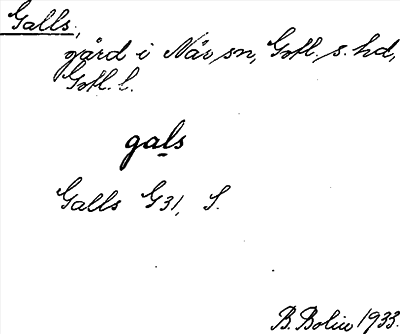 Galls,
gård i När sn, Gotl. s. hd,
Gotl. l.
gals
Galls G31, S.
B. Bolin 1933.